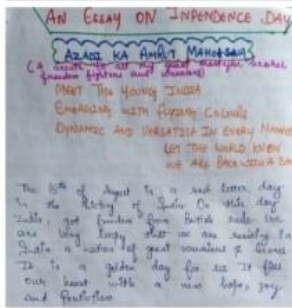 AN ESSAY ON INPENDENCE DAY
AZADI KA AMRUT MAHOTSAVA
(A salute to all my great
freedom fighters and
MEET THE YOUNG INDIA
EMERGING WITH FLYING COLOURS
DYNAMIC AND VERSATILE IN EVERY MANNER
LET THE WORLD KNOW
WE ARE BACK WITH A BA
The 15th of August is a red letter day
in the History of India On this day
India, got freedom from British rule we
are very happy that we are residing in
India a nation of great &
It is a golden day for us It fills
our heart with a new hope, joy
and